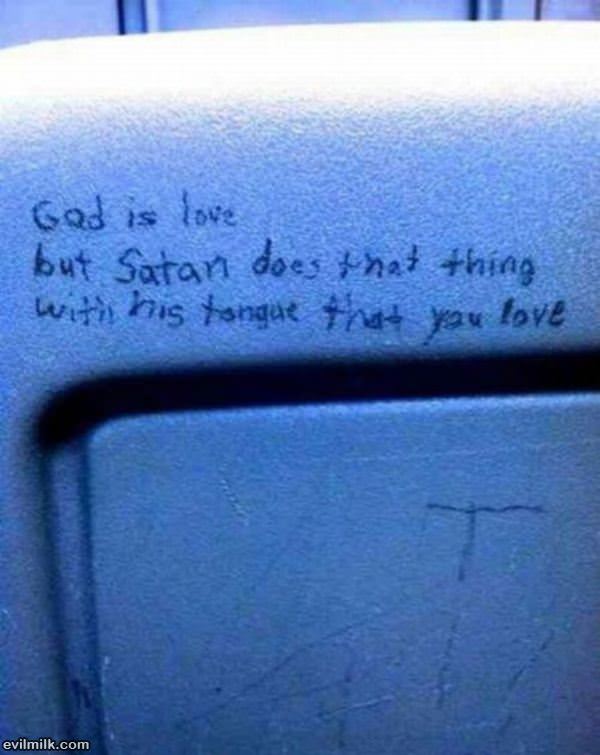 God is love
but Satan does that thing
with his tongue that you love
T
evilmilk.com